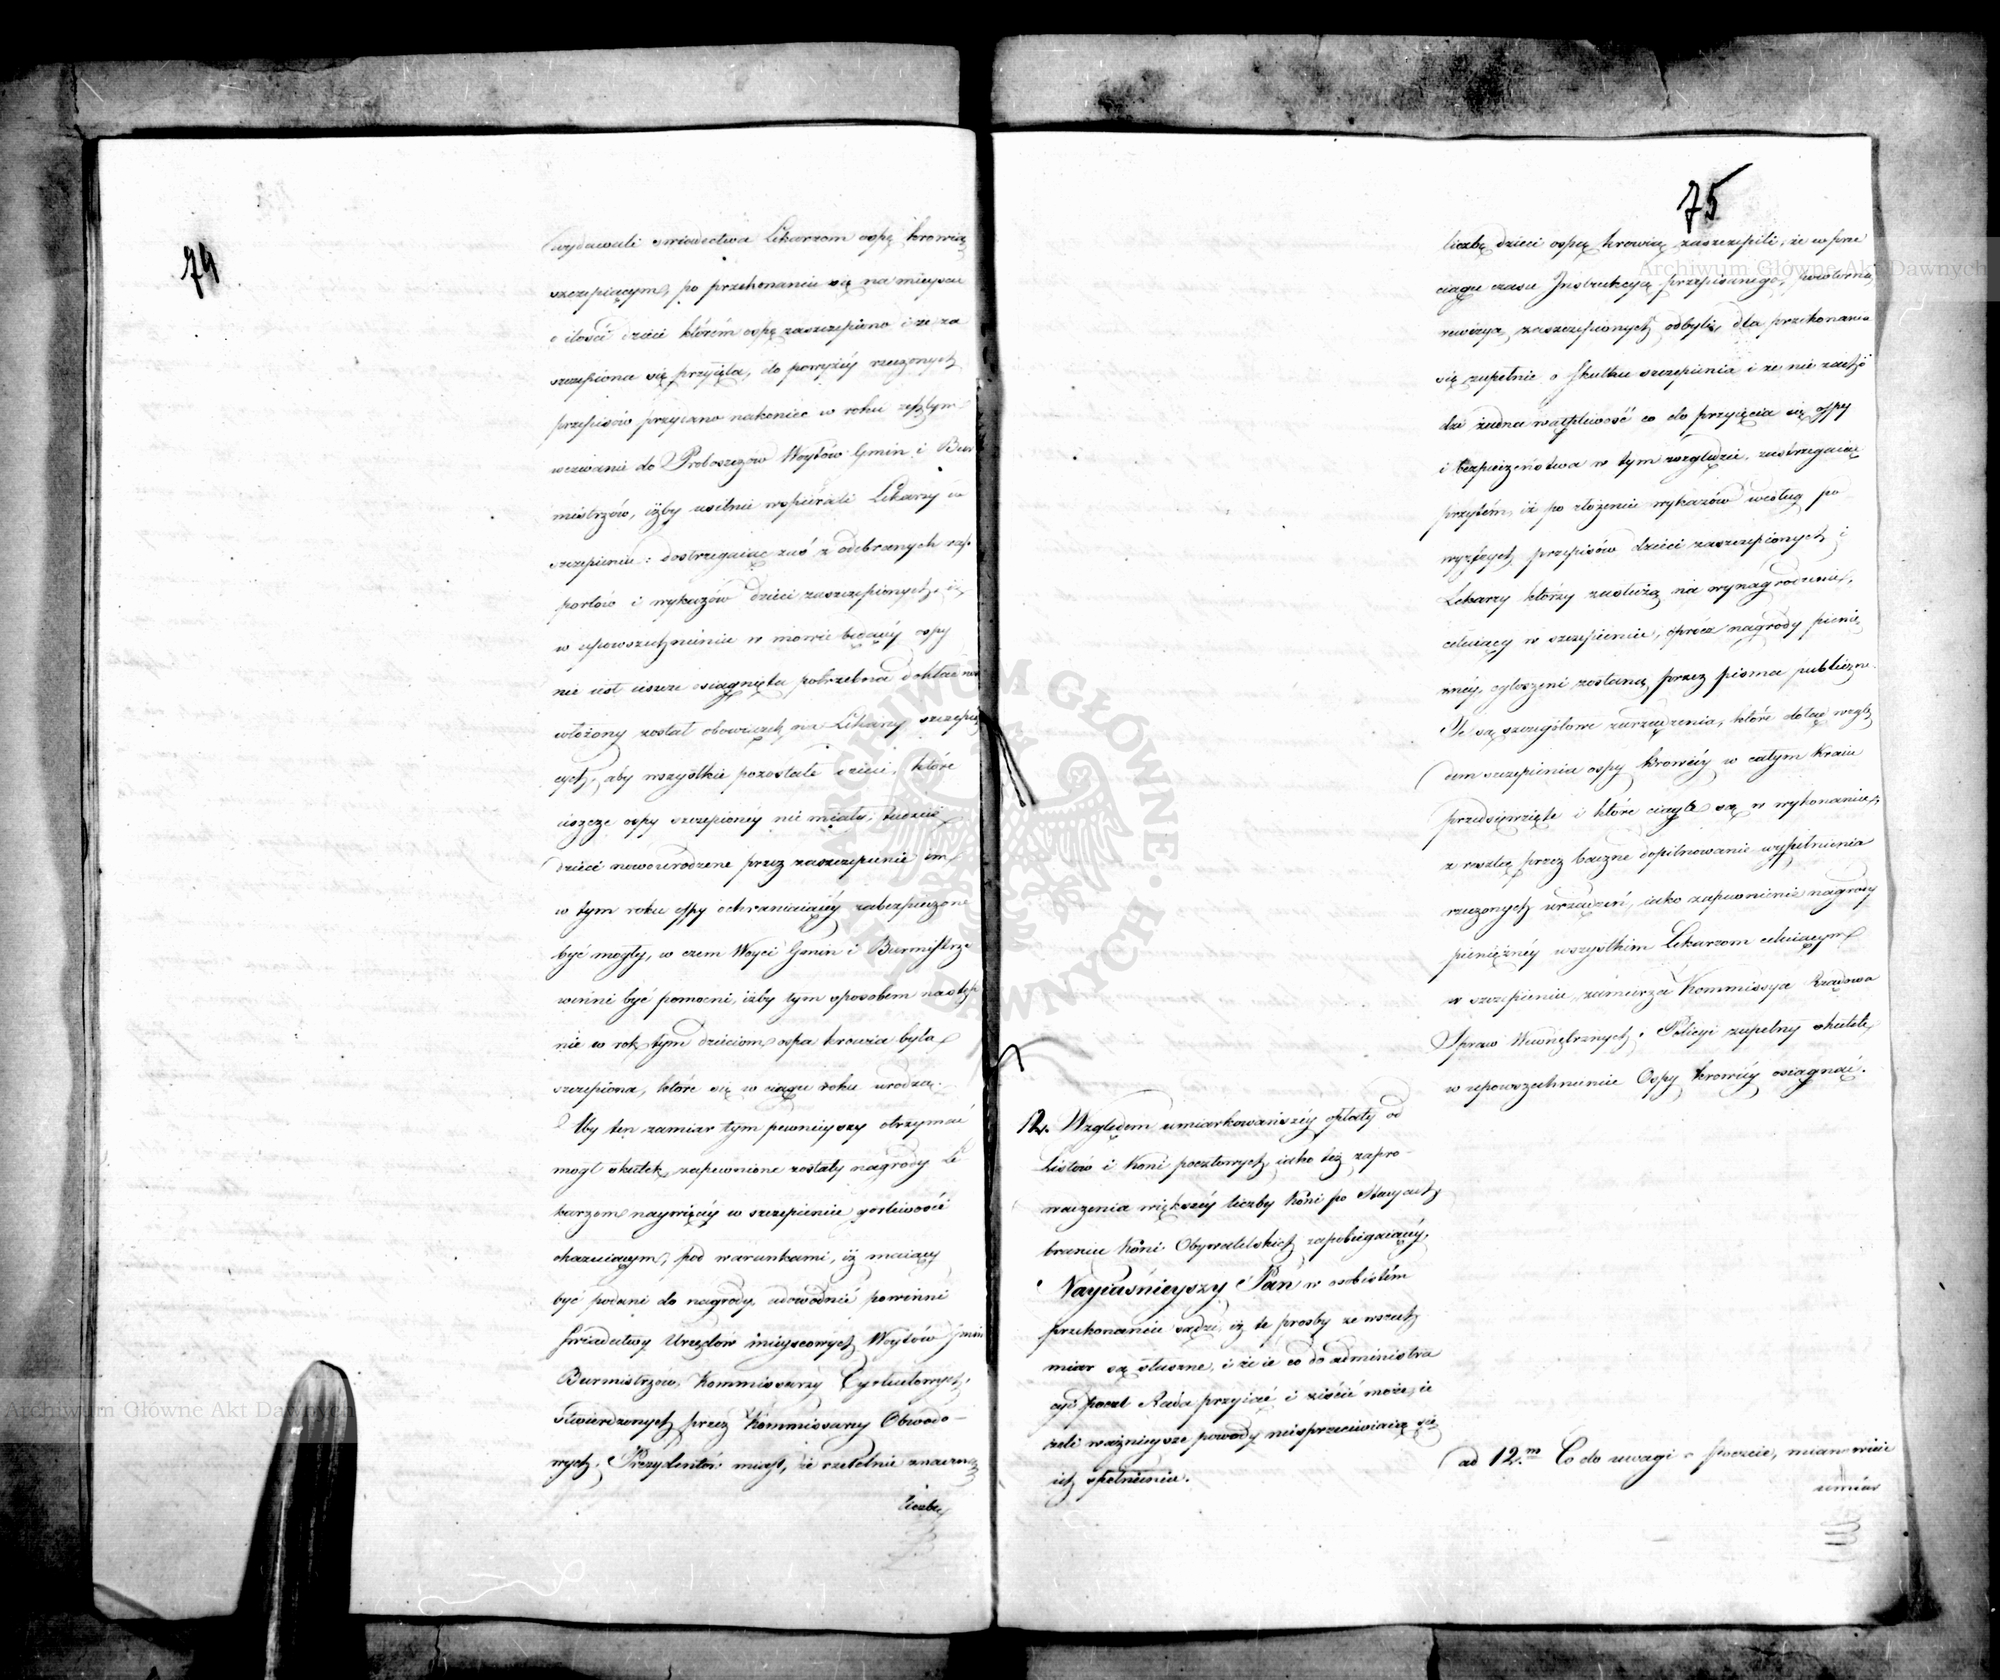 74
wydawali swiadectwa Lekarzom ospę krowią
szczepiącym, po przekonaniu się na mieyscu
o ilości dzieci którém ospę zaszczepiono i że za
szczepiona się przyięła, do powyżéy rzeczonych
przepisów przydano nakoniec w roku zeszłym
wezwanie do Proboszczów Woytów Gmin i Bur
mistrzów, iżby usilnie wspierali Lekarzy w
szczepieniu: dostrzegaiąc zaś z odebranych rap
portów i wykazów dzieci zaszczepionych, iż
w upowszechnieniu w mowie będącéy ospy
nie iest ieszcze osiągnięta potrzebna
włożony został obowiązek na Lekarzy szczepią
cych, aby wszystkie pozostałe dzieci, które
ieszcze ospy szczepionéy nie miały, tudzież
dzieci nowourodzone przez zaszczepienie im
w tym roku ospy ochraniaiącéy zabezpieczone
być mogły, w czem Woyci Gmin i Burmistrze
winni być pomocni, iżby tym sposobem następ
nie w rok tym dzieciom ospa krowia była
szczepiona, które się w ciągu roku urodzą.
Aby ten zamiar tym pewnieyszy otrzymać
mogł skutek, zapewnione zostały nagrody Le
karzom naywięcéy w szczepieniu gorliwości
okazuiącym, pod warunkami, iż maiący
być podani do nagrody udowodnić powinni
świadectwy Urzędów mieyscowych Woytów Gmin
Burmistrzów, Kommissarzy Cyrkułowych,
stwierdzonych przez Kommissarzy Obwodo-
wych, Prezydentów miast, że rzetelnie znaczną
liczbę
75
liczbę dzieci ospą krowią zaszczepili, że w prze
ciągu czasu Instrukcyą przepisanego, powtorną
rewizyą zaszczepionych odbyli, dla przekonania
się zupełnie o skutku szczepienia i że nie zacho
dzi żadna wątpliwość co do przyięcia się ospy
i bezpieczeństwa w tym względzie, zastrzegaiąc
przytém, iż po złożeniu wykazów według po
wyższych przepisów dzieci zaszczepionych i
Lekarzy którzy zasłużą na wynagrodzenie,
celuiący w szczepieniu, oprócz nagrody pienię
żnéy, ogłoszeni zostaną przez pisma publiczne.
Te są szczegółowe zarządzenia, które dotąd wzglę
dem szczepienia ospy krowiéy w całym Kraiu
przedsięwzięte i które ciągle są w wykonaniu,
z resztą przez baczne dopilnowanie wypełnienia
rzeczonych urządzeń, iako zapewnienie nagrody
pieniężnéy wszystkim Lekarzom celuiącym
w szczepieniu, zamierza Kommissya Rządowa
Spraw Wewnętrznych i Policyi zupełny skutek
w upowszechnieniu Ospy krowiéy osiągnąć.
12. Względem umiarkowańszéy opłaty od
Listów i Koni pocztowych, iako też zapro-
wadzenia większéy liczby Koni po Stacyach
braniu Koni Obywatelskich zapobiegaiącéy,
Nayiaśnieyszy Pan w osobistém
przekonaniu sądzi, iż te prosby ze wszech
miar są słuszne, i że ie co do administra
cyi poczt Rada przyiąć i ziścić może, ie
żeli ważnieysze powody niesprzeciwiaią się
ich spełnieniu.
ad 12.m Co do uwagi o poczcie, mianowicie
umiar
ARCHIWUM GŁÓWNE AKT DAWNYCH
Archiwum Główne Akt Dawnych
Archiwum Główne Akt Dawnych